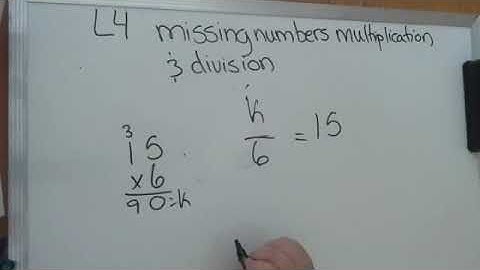 L4 missing numbers multiplication
& division
k
6
= 15
3
15
x 6
90 = k